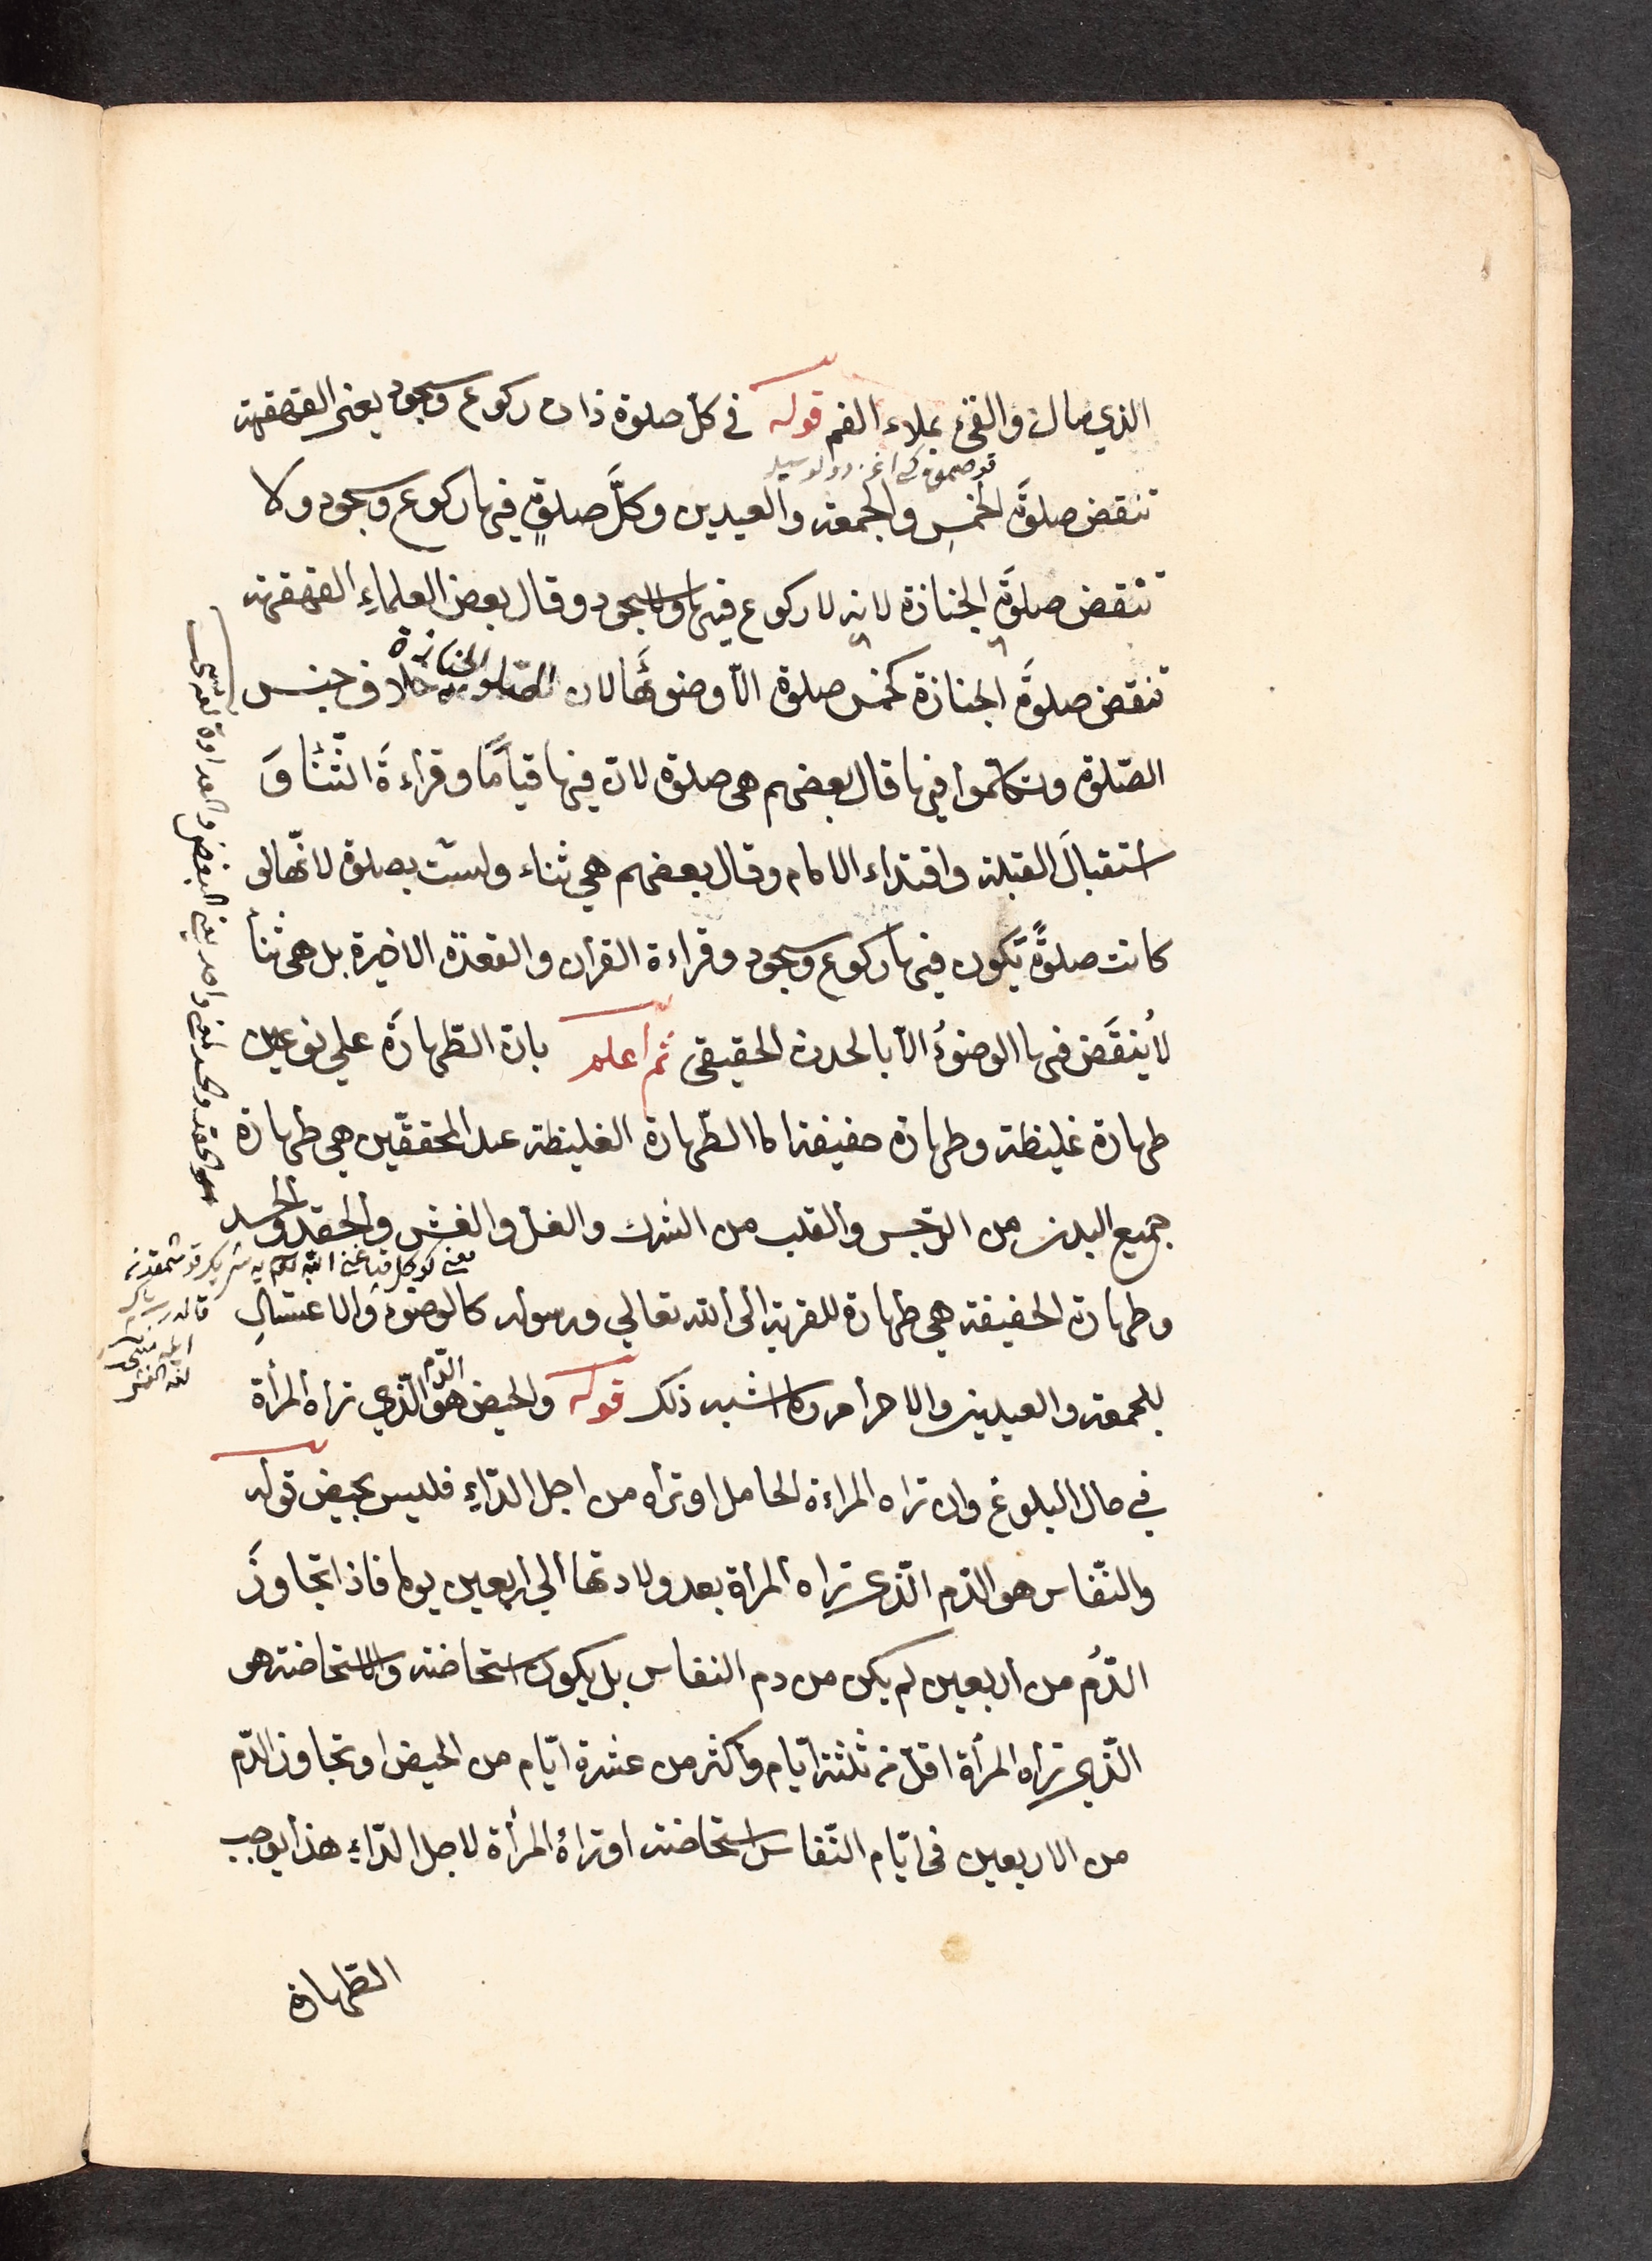 الذي سال والقئ بملاء الفم قوله في كل صلوة ذات ركوع وسجود يعني القهقهة
تنقض صلوةَ الخمسِ والجمعة والعيدين وكلَّ صلوةٍ فيها ركوع وسجود ولا
تنقض صلوةَ الجنازة لانه لا ركوع فيها ولا سجود وقال بعض العلماءِ القهقهة
تنقض صلوةَ الجنازة كخمس صلوة الّا وضوئَها لان الجنازة خلاف جنس
الصّلوة وتكلّموا فيها قال بعضهم هي صلوة لانّ فيها قيامًا وقراءةَ الثّناء وَ
استقبالَ القبلة واقتداء الامام وقال بعضهم هي ثناء وليست بصلوة لانّها لو
كانت صلوةً يكون فيها ركوع وسجود وقراءة القرآن والقعدة الاخيرة بل هي ثناء
لا يُنقَض فيها الوضوءُ الّا بالحدث الحقيقي ثمّ اعلم بانّ الطّهارةَ علي نوعين
طهارة غليظة وطهارة خفيفة اما الطّهارة الغليظة عند المحقّقين هي طهارة
جميع البدن من الرّجس والقلب من الشرك والغل والغش والحقد والحسد
وطهارة الخفيفة هي طهارة للقربة الى الله تعالي ورسوله كالوضوء والاغتسالِ
للجمعة والعيدين والاحرام وما اشبه ذلك قوله والحيض هو الدّم الّذي تراه المرأة
في حال البلوغ وان تراه المراءة الحامل او تراه من اجل الدّاءِ فليس بحيض قوله
والنّفاس هو الدّم الّذي تراه المرأة بعد ولادتها الي اربعين يوما فاذا تجاوزَ
الدّمُ من اربعين لم يكن من دم النفاس بل يكون استحاضة والاستحاضة هو
الّذي تراه المرأة اقلّ من ثلثة ايّام واكثر من عشرة ايّام من الحيض او تجاوز الدّم
من الاربعين في ايّام النّفاس استحاضة او تراهُ المرأة لاجل الدّاءِ هذا يوجب
الطّهارة